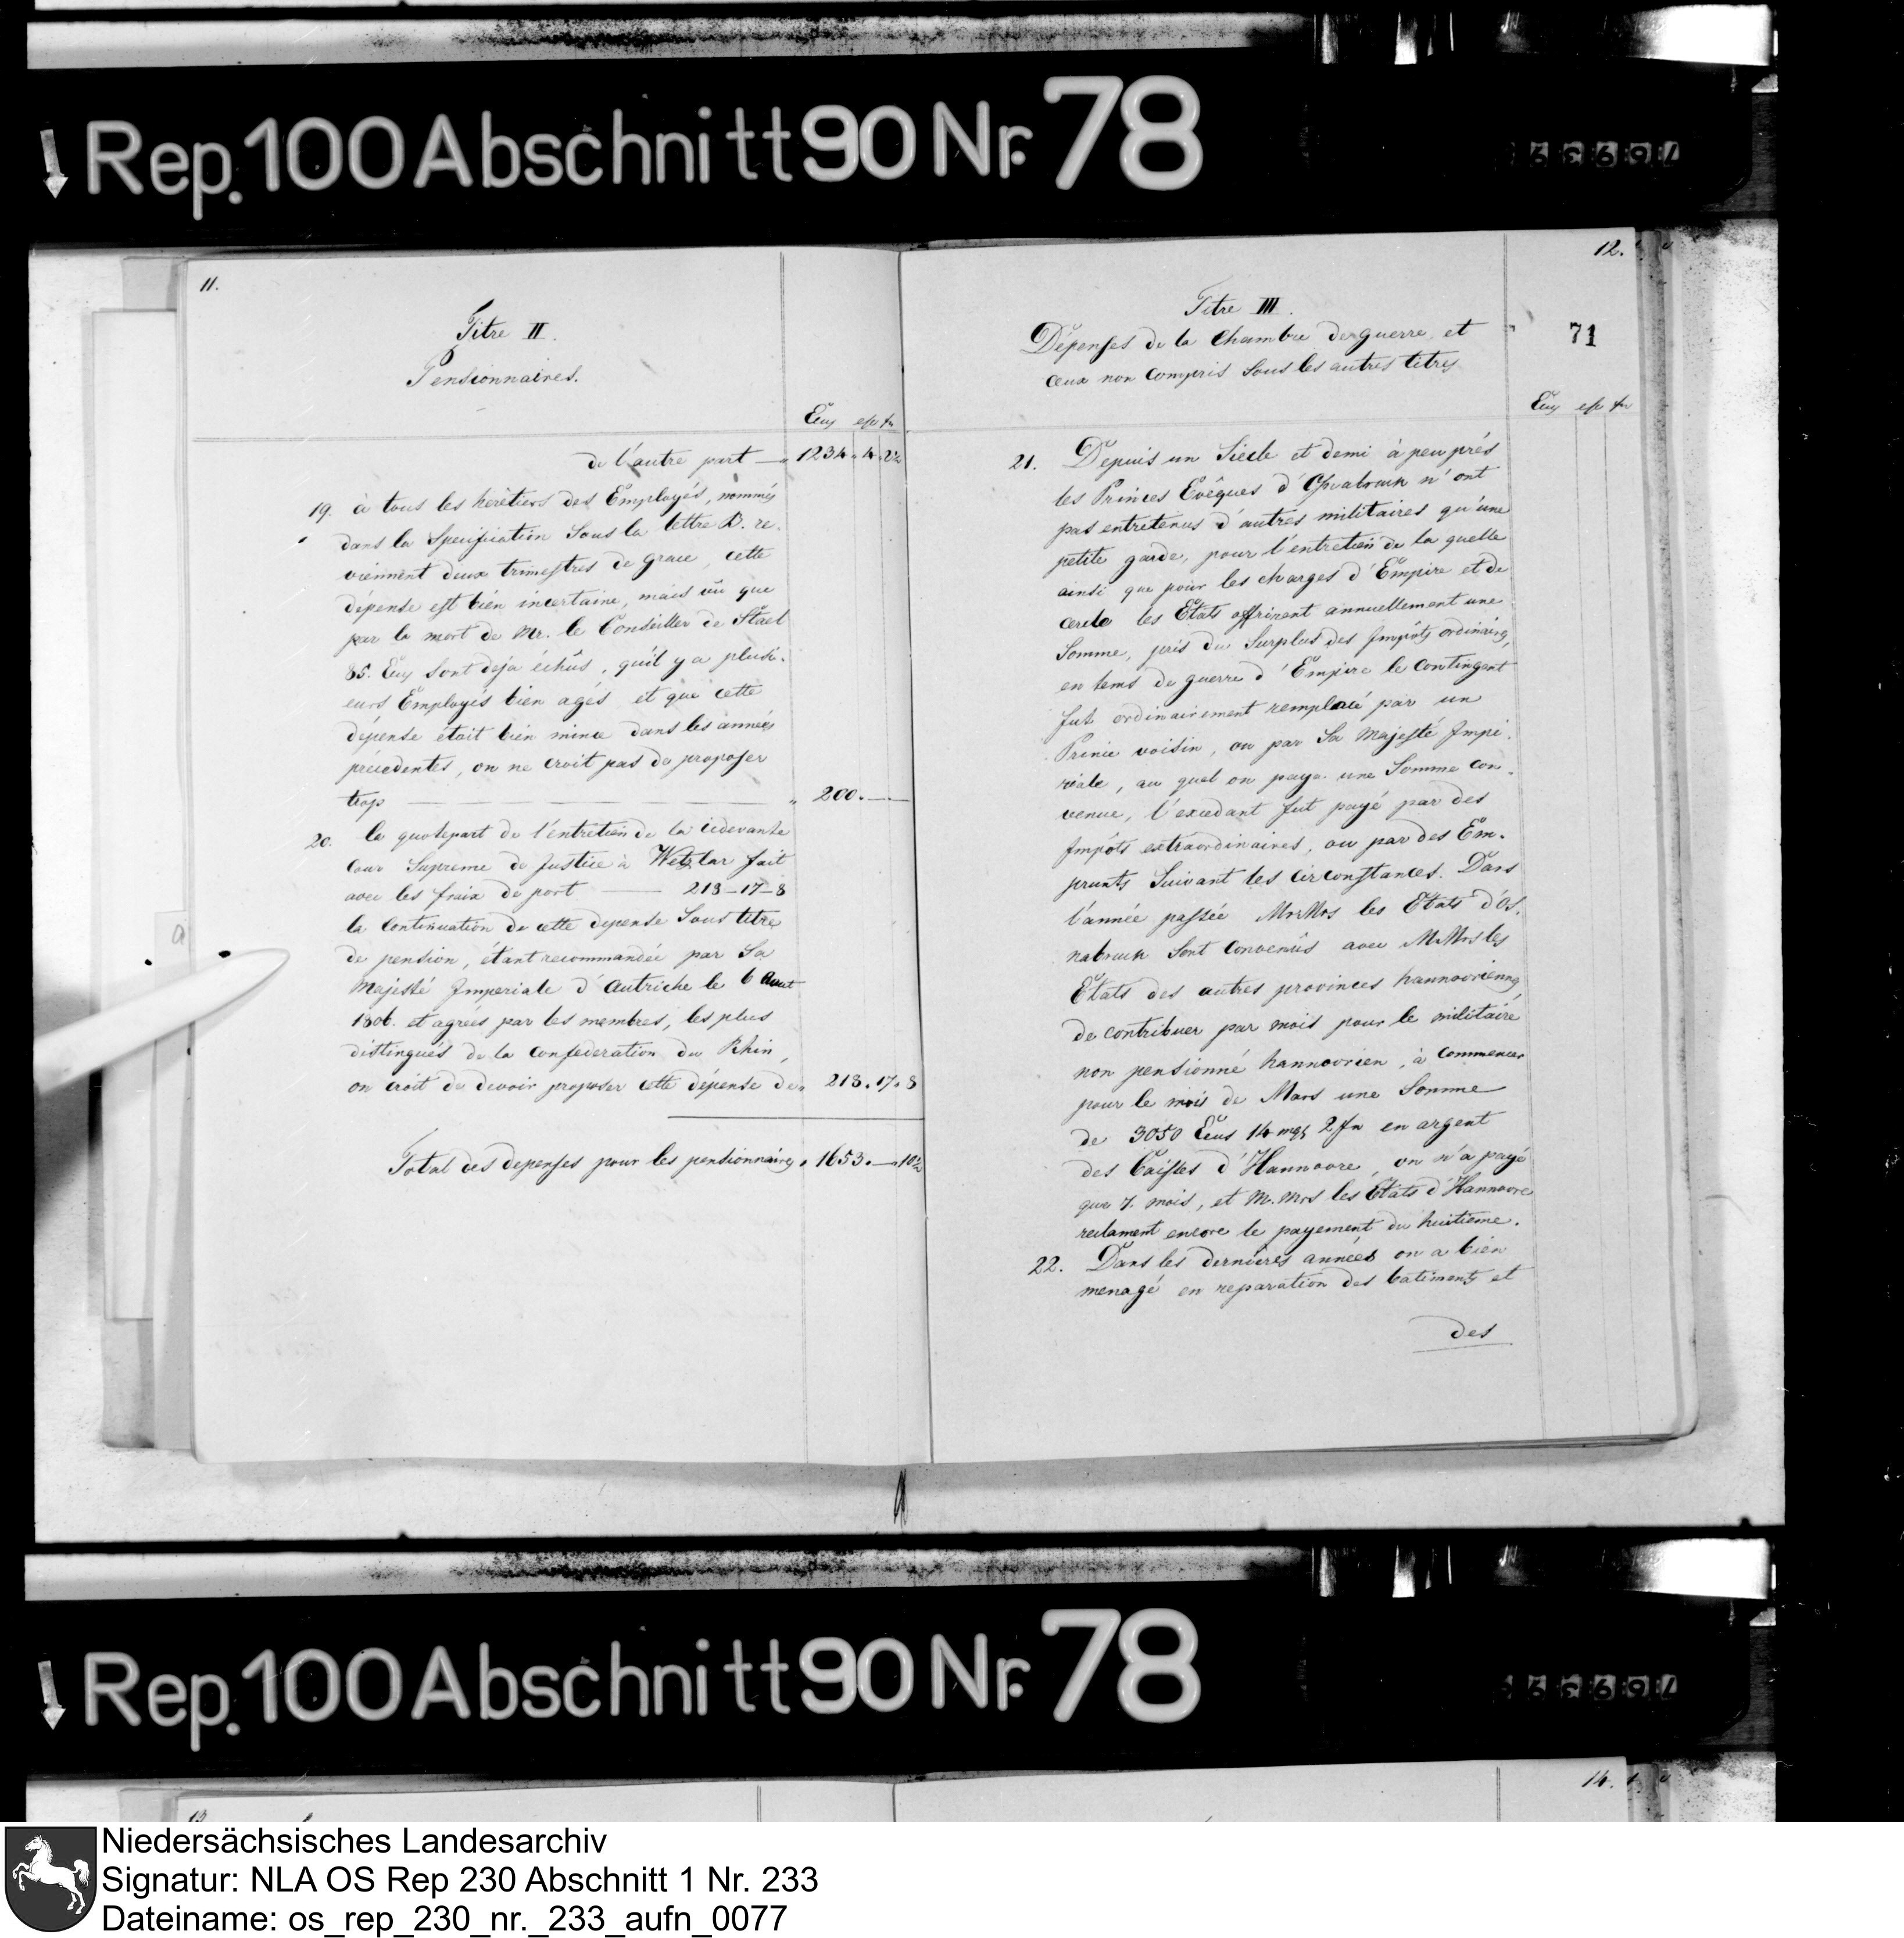 Rep. 100 Abschnitt 90 Nr. 78
11.
Titre II.
Pensionnaires.
de l'autre part — 1234. 4. 2½
19. à tous les heritiers des Employés, nommés
dans la Specification Sous la lettre D. re-
viennent deux trimestres de grace, cette
dépense est bien incertaine, mais vû que
par la mort de Mr. le Conseiller de Stael
85. Ecus sont deja échûs, qu'il y a plusi-
eurs Employés bien agés et que cette
dépense était bien mince dans les années
précedentes, on ne croit pas de proposer
trop — — — — — — " 200. —
20. la quotepart de l'entretien de la cidevante
Cour Supreme de Justice à Wetzlar fait
avec les fraix de port — 213-17-8
la Continuation de cette depense Sous titre
de pension, étant recommandée par Sa
Majesté Imperiale d'Autriche le 6 Aout
1806. et agréés par les membres, les plus
distingués de la Confederation du Rhin,
on croit de devoir proposer cette dépense de " 213. 17. 8
Total des depenses pour les pensionnaires. 1653. — 10½
12.
71
Titre III.
Dépenses de la Chambre de guerre, et
ceux non Compris Sous les autres titres
21. Depuis un Siècle et demi à peu prés
les Princes Evêques d'Osnabruck n'ont
pas entretenus d'autres militaires qu'une
petite garde, pour l'entretien de la quelle
ainsi que pour les charges d'Empire et de
cercle les Etats offrirent annuellement une
Somme, pris du Surplus des Impôts ordinaires,
en tems de guerre d'Empire le Contingent
fut ordinairement remplacé par un
Prince voisin, ou par Sa Majesté Impé-
riale, au quel on paya une Somme con-
venue, l'excedant fut payé par des
Impôts extraordinaires, ou par des Em-
prunts Suivant les circonstances. Dans
l'année passée MrsMrs les Etats d'Os-
nabruck Sont Convenûs avec M.Mrs les
Etats des autres provinces hannovriennes
de contribuer par mois pour le militaire
non pensionné hannovrien, à commencer
pour le mois de Mars une Somme
de 3050 Ecus 14 mgs 2 fn en argent
des Caisses d'Hannovre, on n'a payé
que 7. mois, et M.Mrs les Etats d'Hannovre
reclament encore le payement du huitieme.
22. Dans les dernières années on a bien
menagé en reparation des batiments et
des
Rep. 100 Abschnitt 90 Nr. 78
13
14.
Niedersächsisches Landesarchiv
Signatur: NLA OS Rep 230 Abschnitt 1 Nr. 233
Dateiname: os_rep_230_nr._233_aufn_0077